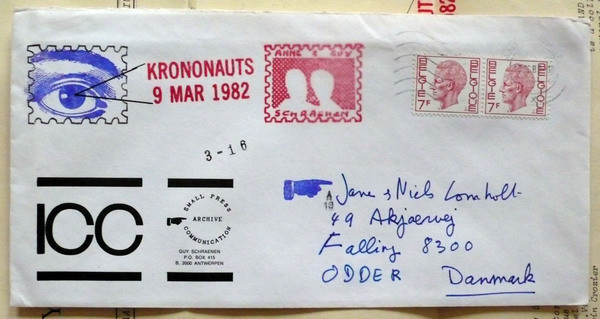 KRONONAUTS
9 MAR 1982
ANNE & GUY
SCHRAENEN
BELGIE BELGIQUE
7F
BELGIE BELGIQUE
7F
3-16
ICC
SMALL PRESS
ARCHIVE
COMMUNICATION
GUY SCHRAENEN
P.O. BOX 415
B. 2000 ANTWERPEN
A
19
Jane & Niels Lomholt
49 Akjaervej
Falling 8300
ODDER Danmark
in Crozier